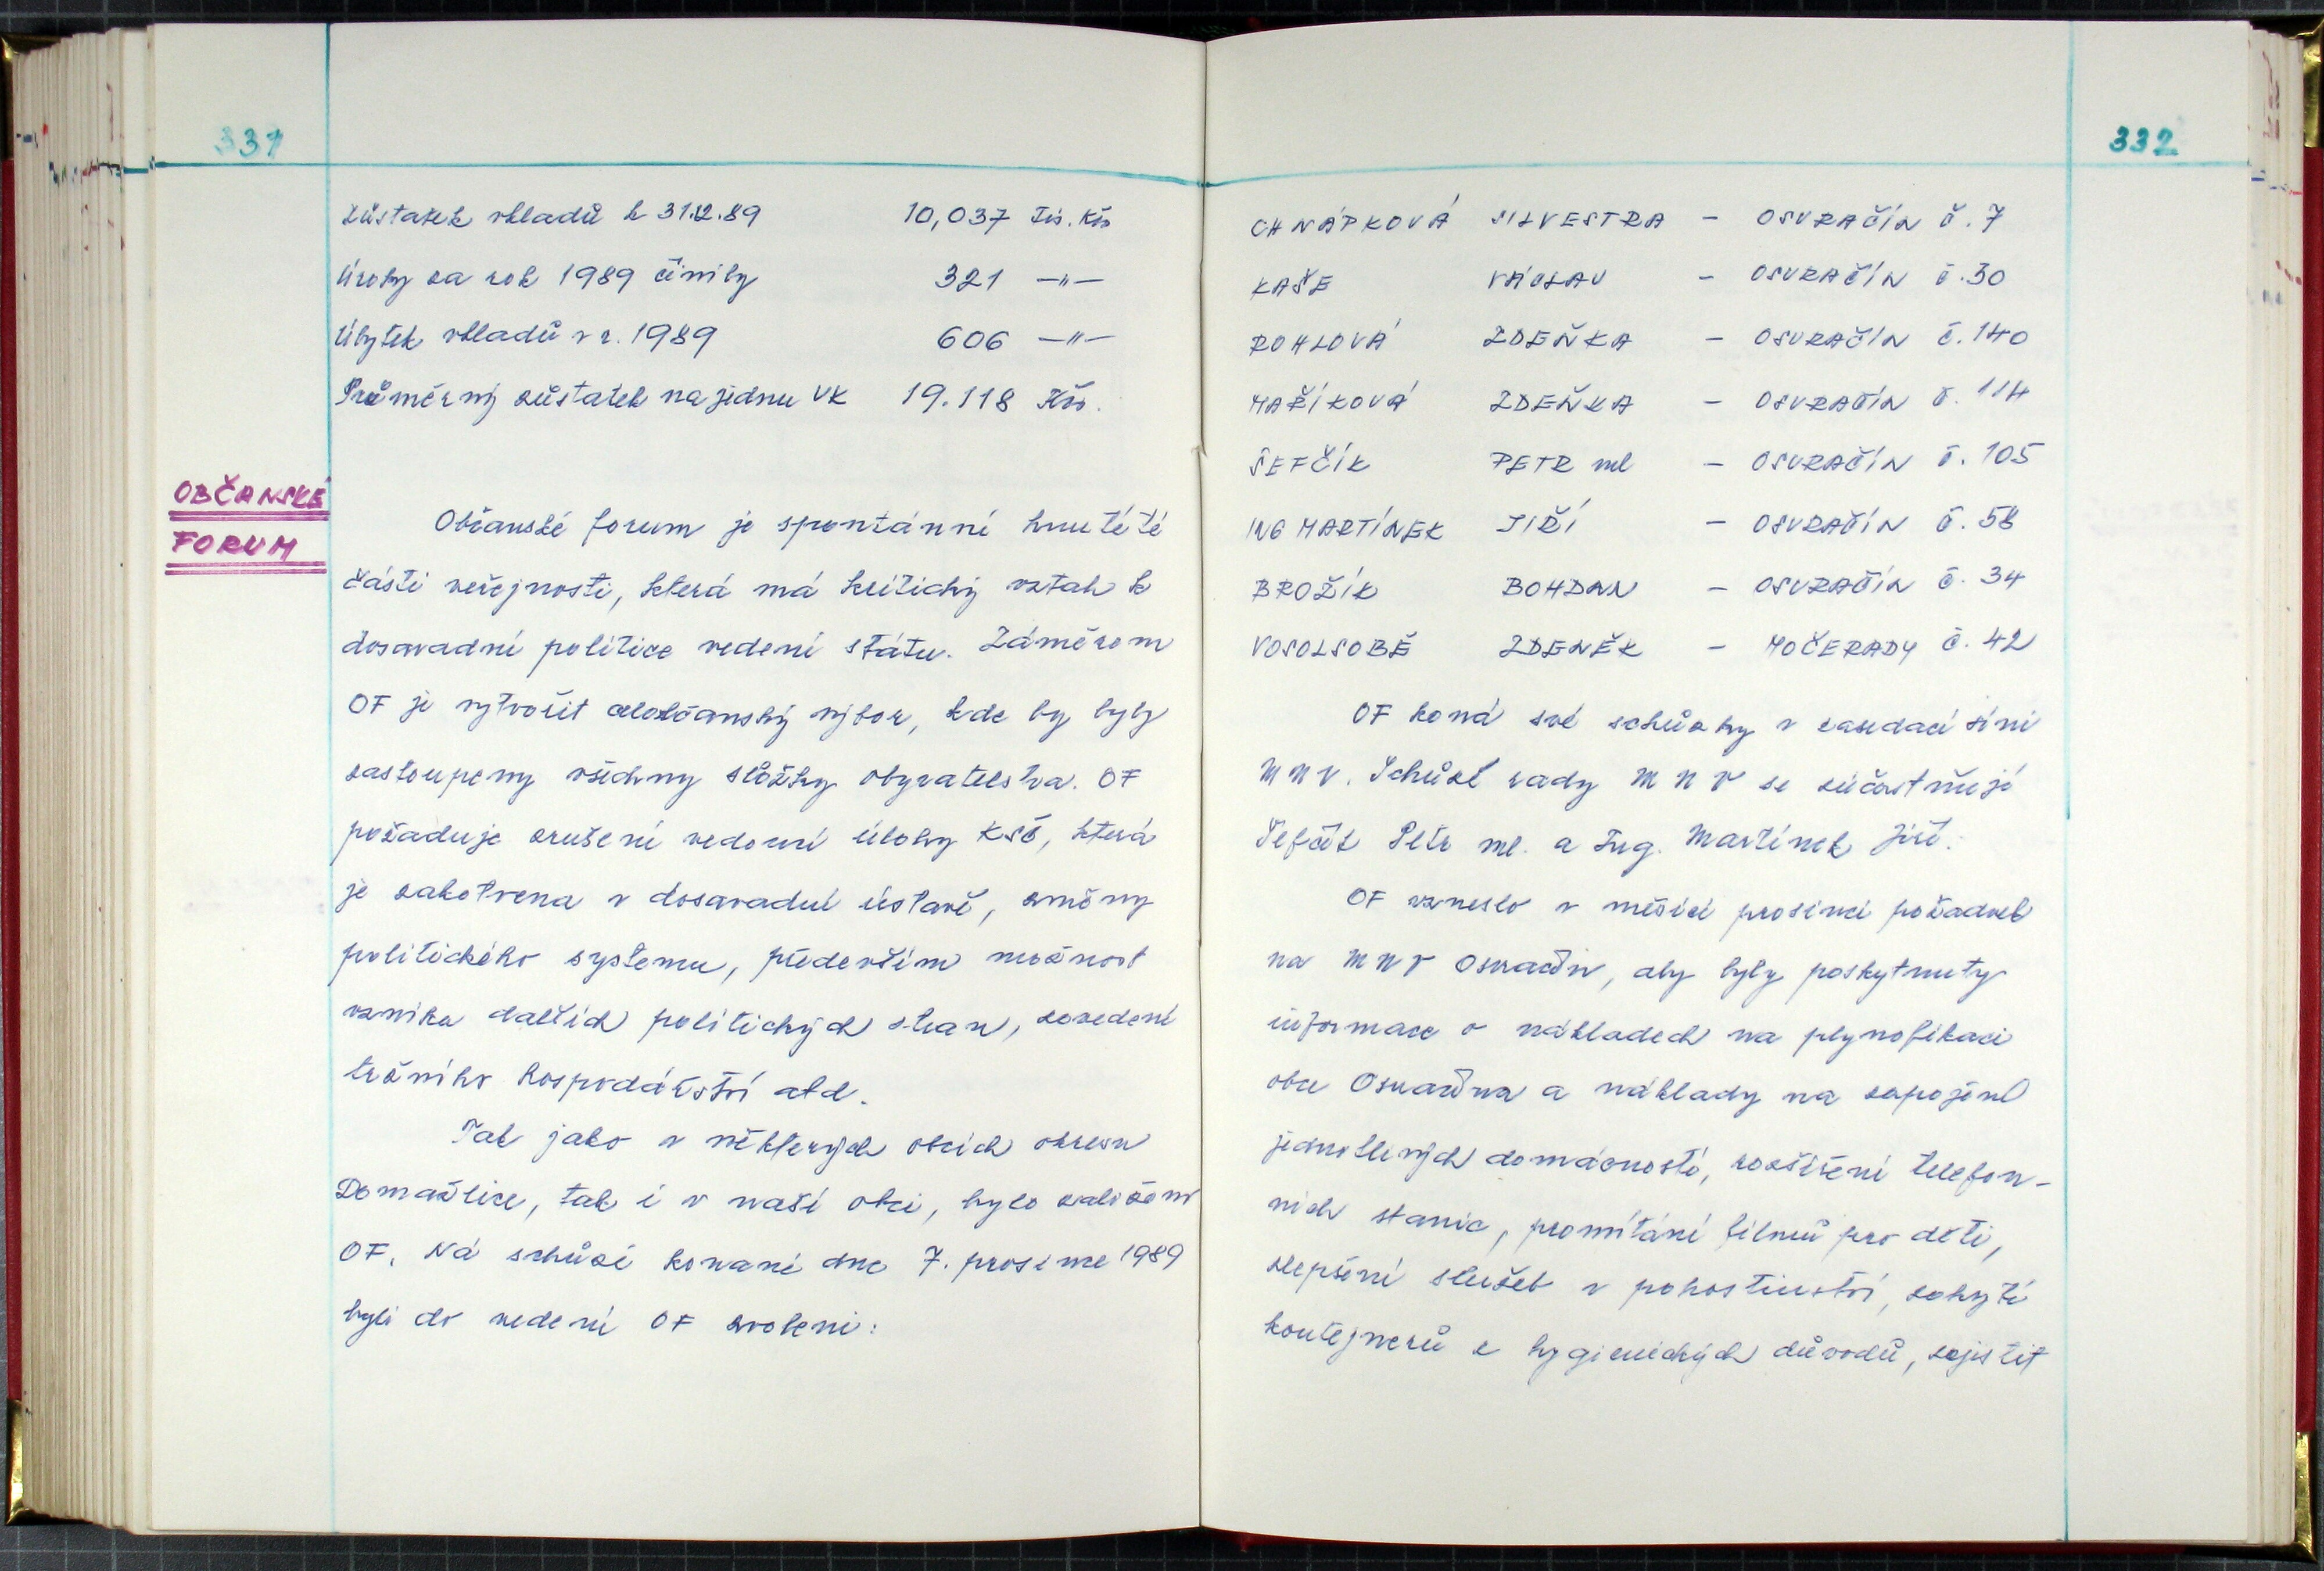 331
Zůstatek vkladů k 31.12.89 10,037 tis. Kčs
Úroky za rok 1989 činily 321 —"—
Úbytek vkladů v r. 1989 606 —"—
Průměrný zůstatek na jednu VK 19.118 Kčs.
OBČANSKÉ
FORUM
Občanské forum je spontánní hnutí té
části veřejnosti, která má kritický vztah k
dosavadní politice vedení státu. Záměrom
OF je vytvořit celoobčanský výbor, kde by byly
zastoupeny všechny složky obyvatelstva. OF
požaduje zrušení vedoucí úlohy KSČ, která
je zakotvena v dosavadní ústavě, změny
politického systemu, především možnost
vzniku dalších politických stran, zavedení
tržního hospodářství atd.
Tak jako v některých obcích okresu
Domažlice, tak i v naší obci, bylo založeno
OF. Na schůzi konané dne 7. prosince 1989
byli do vedení OF zvoleni:
332
CHNÁPKOVÁ SILVESTRA – OSVRAČÍN č. 7
KAŠE VÁCLAV – OSVRAČÍN č. 30
ROHLOVÁ ZDEŇKA – OSVRAČÍN č. 140
MAŘÍKOVÁ ZDEŇKA – OSVRAČÍN č. 114
ŠEFČÍK PETR ml – OSVRAČÍN č. 105
ING MARTÍNEK JIŘÍ – OSVRAČÍN č. 58
BROŽÍK BOHDAN – OSVRAČÍN č. 34
VOSOLSOBĚ ZDENĚK – MOČERADY č. 42
OF koná své schůzky v zasedací síni
MNV. Schůzí rady MNV se zúčastňují
Šefčík Petr ml. a Ing. Martínek Jiří.
OF vzneslo v měsíci prosinci požadavek
na MNV Osvračín, aby byly poskytnuty
informace o nákladech na plynofikaci
obce Osvračína a náklady na zapojení
jednotlivých domácností, rozšíření telefon-
ních stanic, promítání filmů pro děti,
zlepšení služeb v pohostinství, zakrytí
kontejnerů z hygienických důvodů, zajistit